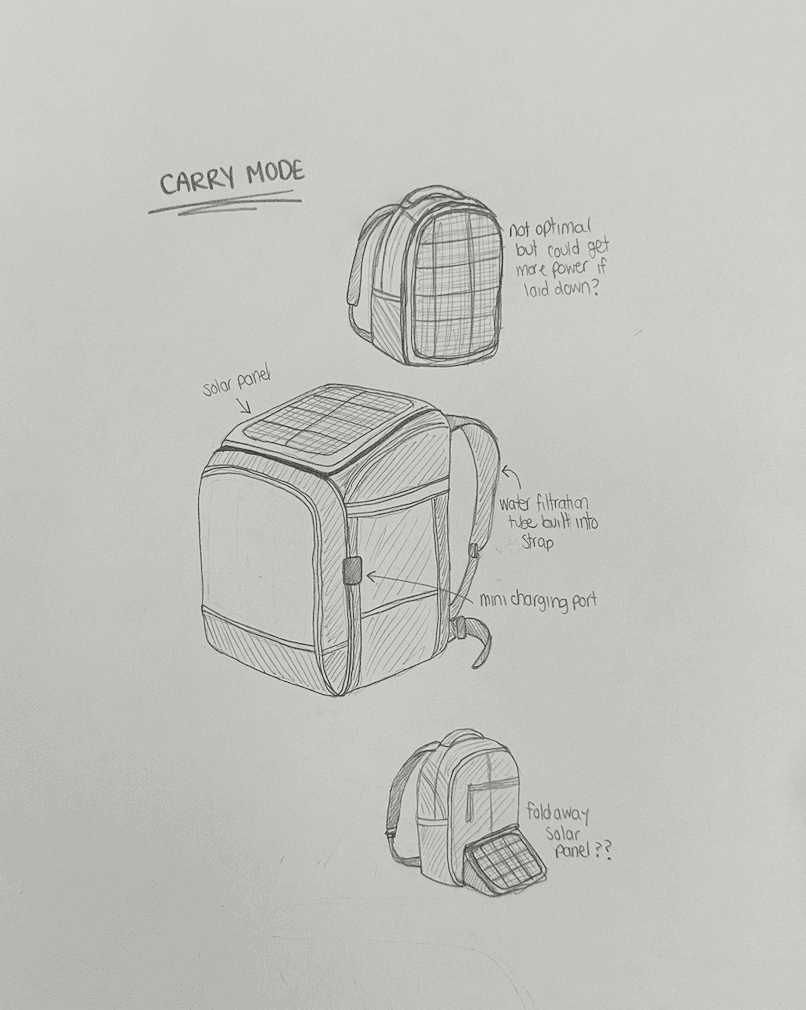 CARRY MODE
not optimal
but could get
more power if
laid down?
solar panel
water filtration
tube built into
strap
mini charging port
fold away
solar
panel??